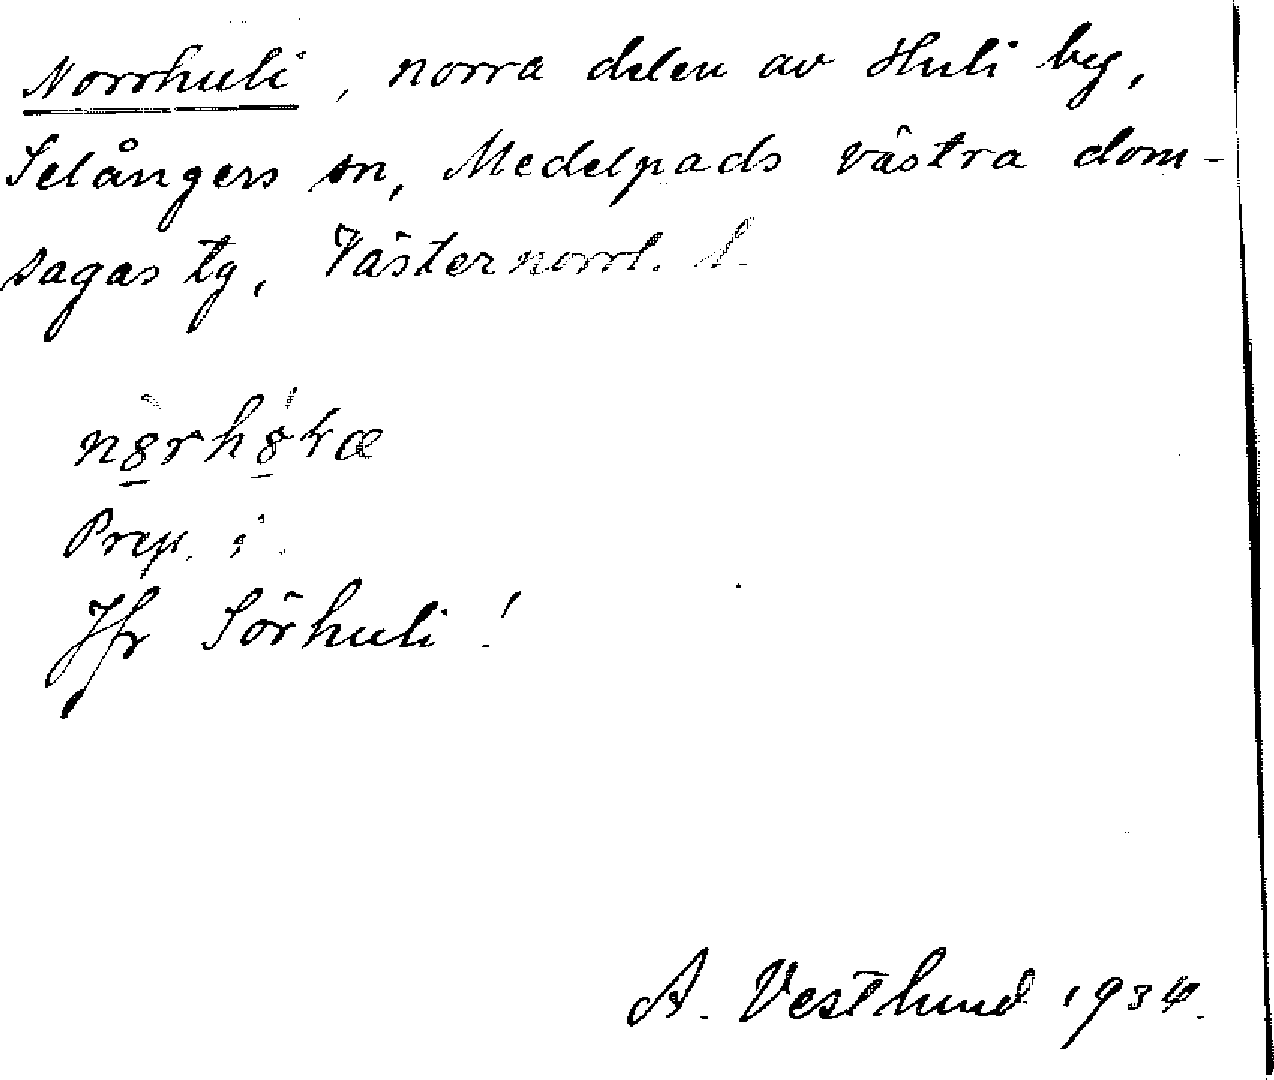 Norrhuli, norra delen av Huli by,
Selångers sn, Medelpads västra dom-
sagas tg, Västernorrl. l.
Prep. i.
Jfr Sörhuli!
A. Vestlund 1934.